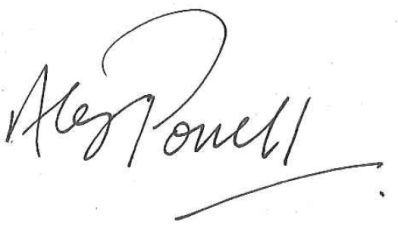 Alex Powell